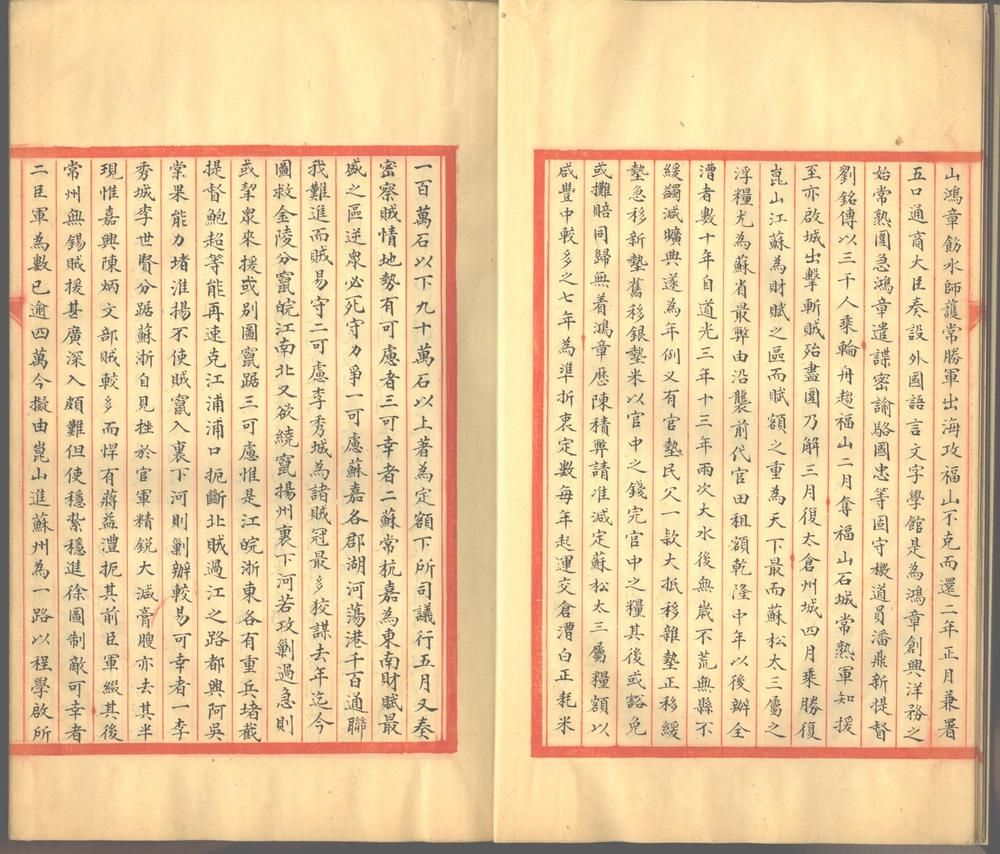 山鴻章飭水師護常勝軍出海攻福山不克而還二年正月兼署
五口通商大臣奏設外國語言文字學館是為鴻章創興洋務之
始常熟圍急鴻章遣諜密諭駱國忠等固守檄道員潘鼎新提督
劉銘傳以三千人乘輪舟趨福山二月奪福山石城常熟軍知援
至亦啟城出擊斬賊殆盡圍乃解三月復太倉州城四月乘勝復
崑山江蘇為財賦之區而賦額之重為天下最而蘇松太三屬之
浮糧尤為蘇省最弊由沿襲前代官田租額乾隆中年以後辦全
漕者數十年自道光三年十三年兩次大水後無歲不荒無縣不
緩蠲減曠典遂為年例又有官墊民欠一款大抵移雜墊正移緩
墊急移新墊舊移銀墊米以官中之錢完官中之糧其後或豁免
或攤賠同歸無着鴻章歷陳積弊請准減定蘇松太三屬糧額以
咸豐中較多之七年為準折衷定數每年起運交倉漕白正耗米
一百萬石以下九十萬石以上著為定額下所司議行五月又奏
密察賊情地勢有可慮者三可幸者二蘇常杭嘉為東南財賦最
盛之區逆衆必死守力爭一可慮蘇嘉各郡湖河蕩港千百通聯
我難進而賊易守二可慮李秀城為諸賊冠最多狡謀去年迄今
圖救金陵分竄皖江南北又欲繞竄揚州裏下河若攻剿過急則
或挈衆來援或別圖竄踞三可慮惟是江皖浙東各有重兵堵截
提督鮑超等能再速克江浦浦口扼斷北賊過江之路都興阿吳
棠果能力堵淮揚不使賊竄入裏下河則剿辦較易可幸者一李
秀城李世賢分踞蘇浙自見挫於官軍精銳大減膏腴亦去其半
現惟嘉興陳炳文部賊較多而悍有蔣益澧扼其前臣軍綴其後
常州無錫賊援甚廣深入頗難但使穩紮穩進徐圖制敵可幸者
二臣軍為數已逾四萬今擬由崑山進蘇州為一路以程學啟所